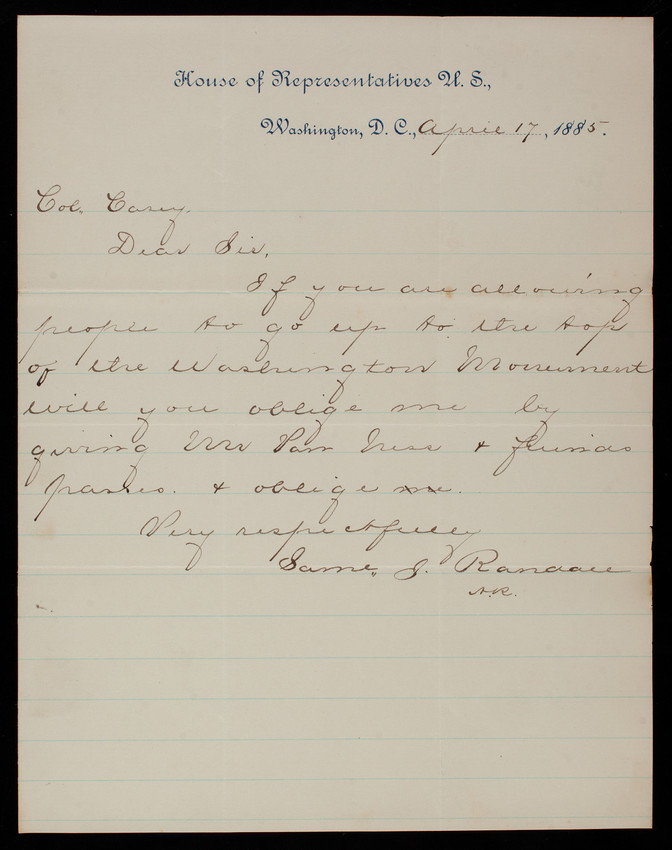 House of Representatives U. S.,
Washington, D. C., April 17, 1885.
Col. Casey.
Dear Sir,
If you are allowing
people to go up to the top
of the Washington Monument
will you oblige me by
giving Mr Van Ness & friends
passes. & oblige me.
Very respectfully
Saml. J. Randall